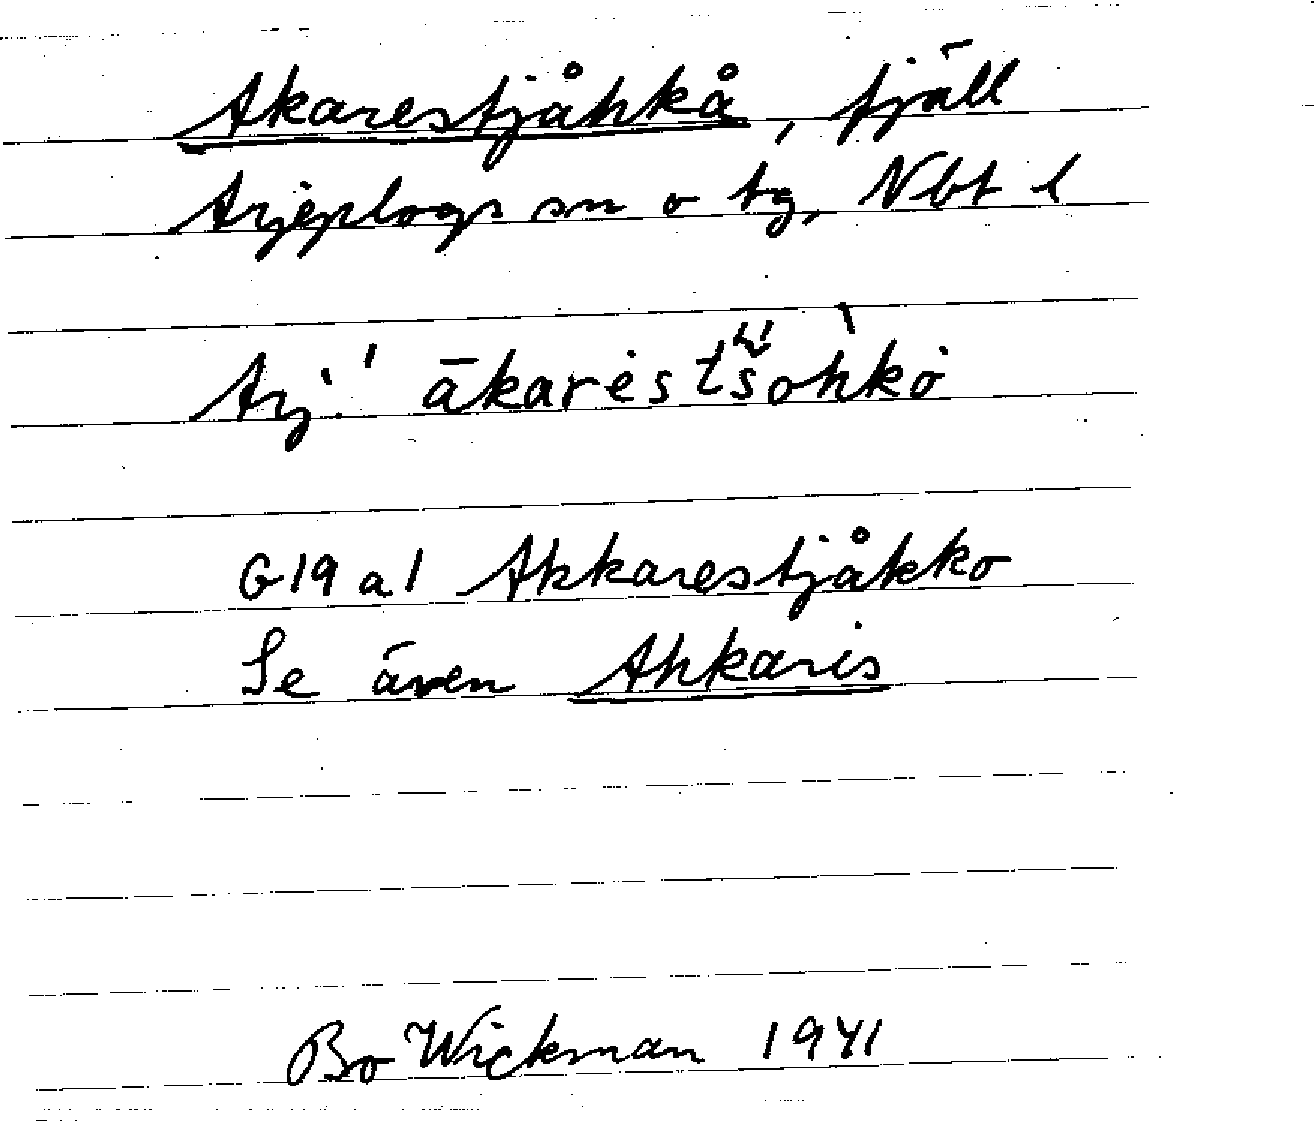 Akarestjåhkå, fjäll
Arjeplogs sn o tg, Nbt l
Arj.' ākarės tšohkȯ
G19 a 1 Akkarestjåkko
Se även Ahkaris
Bo Wickman 1941